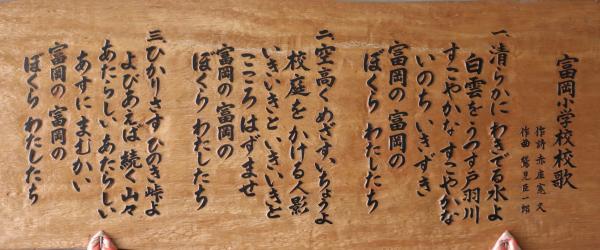 富岡小学校校歌
作詩 赤座憲久
作曲 鷲見臣一郎
一、清らかに わきでる水よ
白雲を うつす戸羽川
すこやかな すこやかな
いのち いきずき
富岡の 富岡の
ぼくら わたしたち
二、空高く めざす いちょうよ
校庭を かける人影
いきいきと いきいきと
こころ はずませ
富岡の 富岡の
ぼくら わたしたち
三、ひかりさす ひのき峠よ
よびあえば 続く山々
あたらしい あたらしい
あすに まむかい
富岡の 富岡の
ぼくら わたしたち